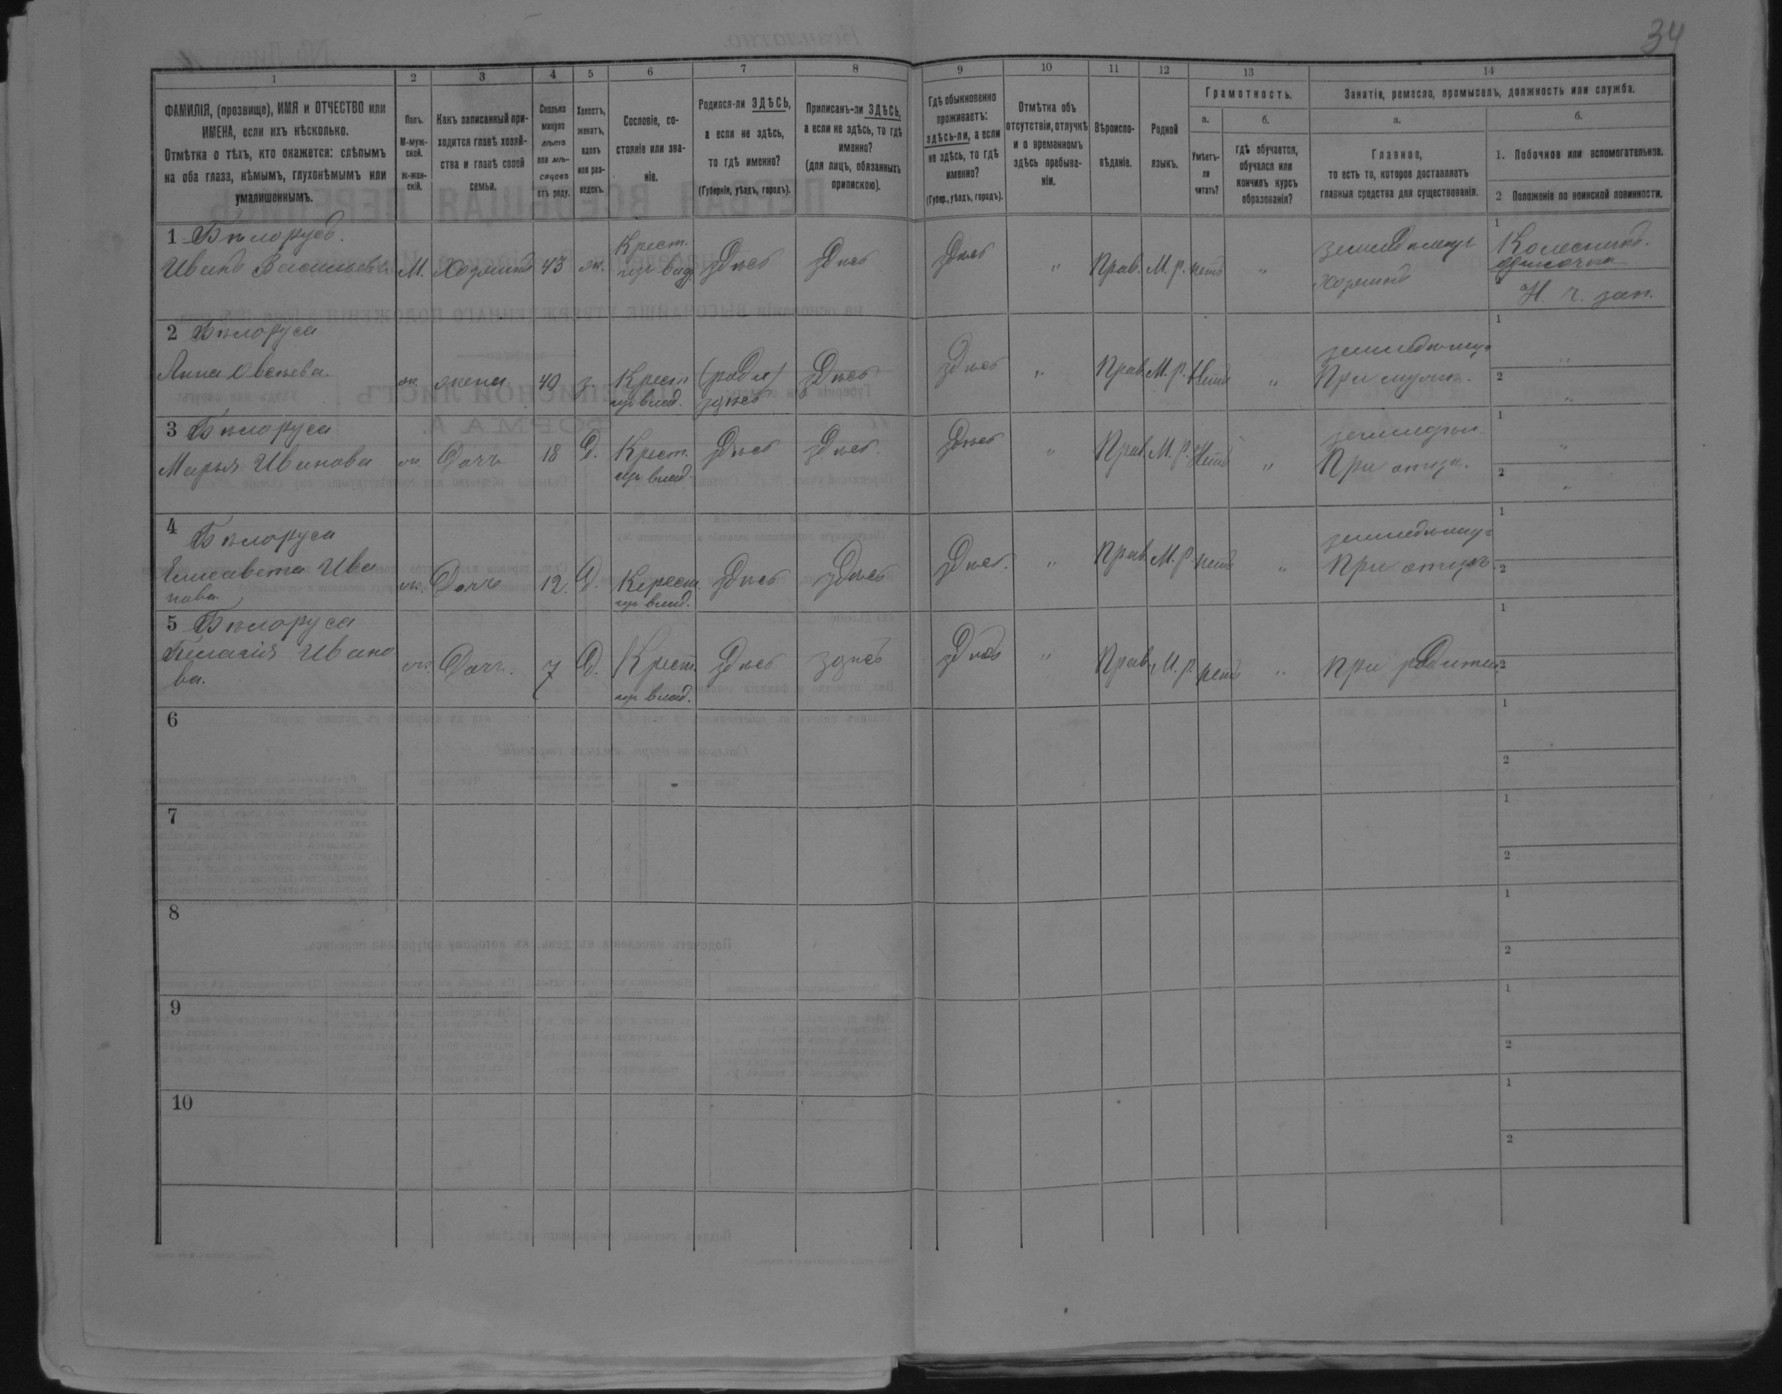 34
1
2
3
4
5
6
7
8
9
10
11
12
13
14
ФАМИЛІЯ, (прозвище), ИМЯ и ОТЧЕСТВО или
ИМЕНА, если ихъ нѣсколько.
Отмѣтка о тѣхъ, кто окажется: слѣпымъ
на оба глаза, нѣмымъ, глухонѣмымъ или
умалишеннымъ.
Полъ.
М-муж-
ской.
Ж-жен-
скій.
Какъ записанный при-
ходится главѣ хозяй-
ства и главѣ своей
семьи.
Сколько
минуло
лѣтъ
или мѣ-
сяцевъ
отъ роду.
Холостъ,
женатъ,
вдовъ
или раз-
веденъ.
Сословіе, со-
стояніе или зва-
ніе.
Родился-ли ЗДѢСЬ,
а если не здѣсь,
то гдѣ именно?
(Губернія, уѣздъ, городъ).
Приписанъ-ли ЗДѢСЬ,
а если не здѣсь, то гдѣ
именно?
(для лицъ, обязанныхъ
припискою).
Гдѣ обыкновенно
проживаетъ:
здѣсь-ли, а если
не здѣсь, то гдѣ
именно?
(Губер., уѣздъ, городъ).
Отмѣтка объ
отсутствіи, отлучкѣ
и о временномъ
здѣсь пребыва-
ніи.
Вѣроиспо-
вѣданіе.
Родной
языкъ.
Грамотность.
а.
Умѣетъ-
ли
читать?
б.
Гдѣ обучается,
обучался или
кончилъ курсъ
образованія?
Занятіе, ремесло, промыселъ, должность или служба.
а.
Главное,
то есть то, которое доставляетъ
главныя средства для существованія.
б.
1. Побочное или вспомогательное.
2 Положеніе по воинской повинности.
1 Бѣлорусъ.
Иванъ Васильевъ. М. Хозяинъ 43 ж. Крест. изъ влад. Здѣсь Здѣсь Здѣсь " Прав. М. р. нетъ "
Хозяинъ
1 Колесникъ.
одиночка
2 Н. ч. зап.
2 Бѣлоруса
Анна ж. жена 40 з. Крест. изъ влад. здѣсь Здѣсь Здѣсь " Прав. М. р. Нетъ "
При мужѣ.
1 "
2 "
3 Бѣлоруса
Марья Иванова ж. Дочь 18 Д. Крест. изъ влад. Здѣсь Здѣсь. Здѣсь " Прав. М. р. Нетъ "
При отцѣ.
1 "
2 "
4 Бѣлоруса
Елисавета Ива
нова ж. Дочь 12. Д. Крест. изъ влад. Здѣсь Здѣсь Здѣсь. " Прав. М. р. нетъ "
При отцѣ
1
2
5 Бѣлоруса
Ивано
ва. ж. Дочь. 7 Д. Крест. изъ влад. Здѣсь здѣсь Здѣсь " Прав. М. р. нетъ " при
1
2
6
1
2
7
1
2
8
1
2
9
1
2
10
1
2